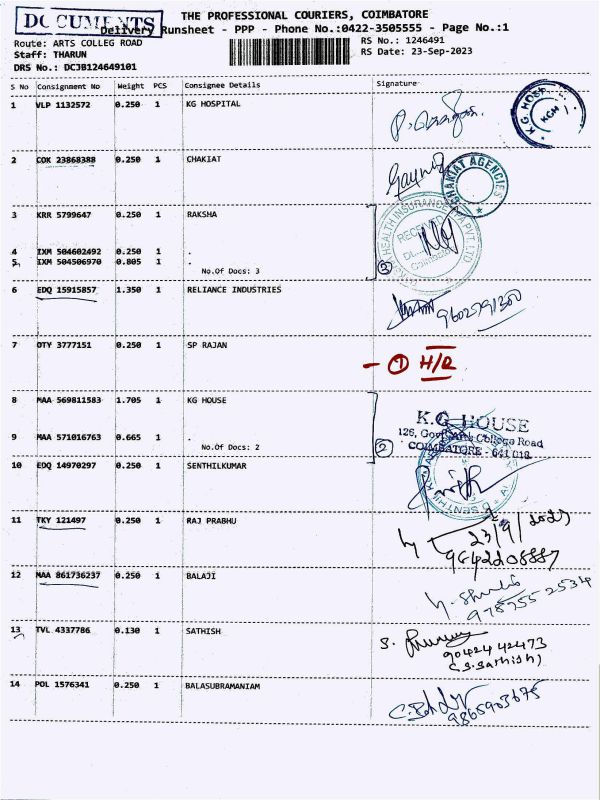 DOCUMENTS
THE PROFESSIONAL COURIERS, COIMBATORE
Delivery Runsheet - PPP - Phone No.:0422-3505555 - Page No.:1
Route: ARTS COLLEG ROAD
Staff: THARUN
DRS No.: DCJB124649101
RS No.: 1246491
RS Date: 23-Sep-2023
S No Consignment No Weight PCS Consignee Details Signature
1 VLP 1132572 0.250 1 KG HOSPITAL
K.G. HOSP
KGH
2 COK 23868388 0.250 1 CHAKIAT
CHAKIAT AGENCIES
3 KRR 5799647 0.250 1 RAKSHA
HEALTH INSURANCE PVT.LTD
RECEIVED
4 IXM 504602492 0.250 1 .
5 IXM 504506970 0.805 1 .
No.Of Docs: 3
3
6 EDQ 15915857 1.350 1 RELIANCE INDUSTRIES
7 OTY 3777151 0.250 1 SP RAJAN
- 1 H/R
8 MAA 569811583 1.705 1 KG HOUSE
K.G HOUSE
126, Govt Arts College Road
COIMBATORE - 641 018
9 MAA 571016763 0.665 1 .
No.Of Docs: 2
2
10 EDQ 14970297 0.250 1 SENTHILKUMAR
11 TKY 121497 0.250 1 RAJ PRABHU
23/9/2023
9642208887
12 MAA 861736237 0.250 1 BALAJI
9787552534
13 TVL 4337786 0.130 1 SATHISH
S.
9042442473
(S.Sathish)
14 POL 1576341 0.250 1 BALASUBRAMANIAM
9865903675